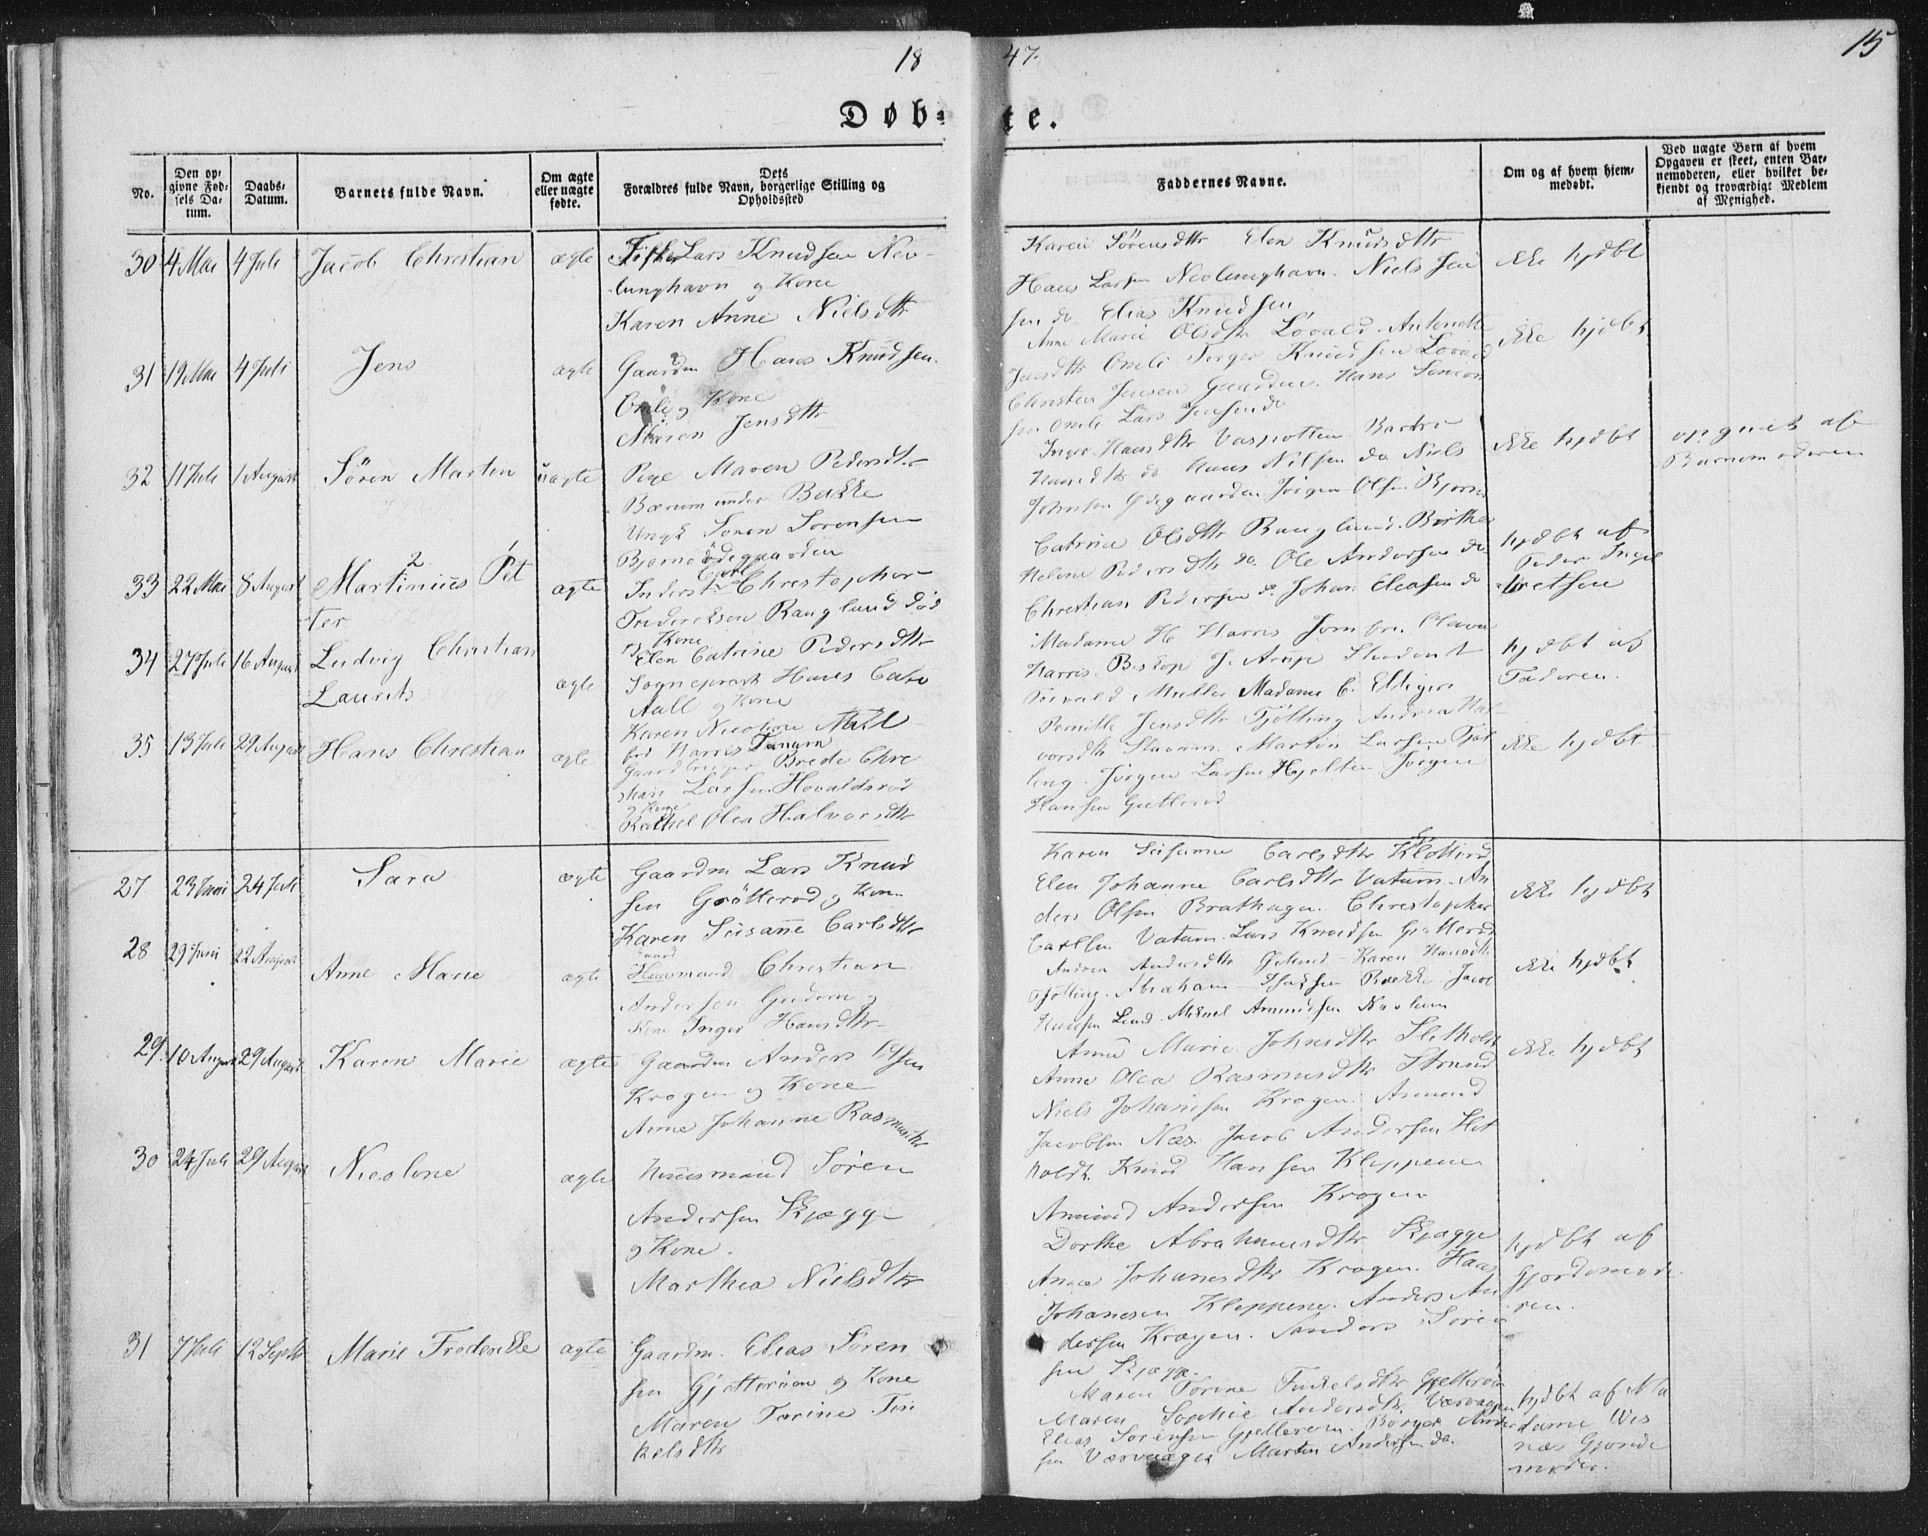 1847.
15
Døbte.
No.
Den opgivne Fødsels Datum.
Daabs-Datum.
Barnets fulde Navn.
Om ægte eller uægte fødte.
Dets Forældres fulde Navn, borgerlige Stilling og Opholdssted
Faddernes Navne.
Om og af hvem hjemmedøbt.
Ved uægte Børn af hvem Opgaven er skeet, enten Barnemoderen, eller hvilket bekjendt og troværdigt Medlem af Menighed.
30 4 Mai 4 Juli Jacob Christian ægte Fisker Lars Knudsen Nev-
lunghavn og Kone
Karen Anne Nielsdtr
Karen Sörensdtr Elen Knudsdtr
Hans Larsen Nevlunghavn. Niels Jen
sen do Elias Knudsen
ikke hjdbt
31 19 Mai 4 Juli Jens ægte Gaardm Hans Knudsen
Omli og Kone
Maren Jensdtr
Anne Marie Olsdtr Lövald. Antonette
Jensdtr Omli Torger Knudsen Lövald
Christen Jensen Gaarden. Hans Simon
sen Omli Lars Jensen do
ikke hjdbt
32 11 Juli 1 August Sören Martin uægte Pige Maren Pedersdtr
Bærum under Bakke
Ungk Sören Sörensen
Bjørnødegaarden
Inger Hansdtr
Hansdtr do Hans Nilsen do Niels
Johnsen Ødegaarden Jørgen Olsen
ikke hjdbt
opgivet af
Barnemoderen
33 22 Mai 8 August Martinius Pet
ter
ægte Inderst Carl Christopher
Fredericksen Rauglund død
og Kone
Elen Catrine Pedersdtr
Catrine Olsdtr Rauglund. Birthe
Helene Pedersdtr do. Ole Andersen do
Christian Pedersen do Johan Eleasen do
hjdbt af
Peder Ingel
bretsen
34 27 Juli 16 August Ludvig Christian
Laurits
ægte Sogneprest Hans Cato
Aall og Kone
Karen Nicoline Aall
född Harris Tanum
Madame H. Harris Jomfru
Harris. Biskop J. Arup Student
Müller Madame C. Elliger
hjdbt af
Faderen.
35 13 Juli 29 August Hans Christian ægte Gaardbruger Brede Chri
stian Larsen Hovaldsröd
og Kone
Rachel Olea Halvorsdtr
Pernille Jensdtr Tjölling Andrea Hal
vorsdtr Stavrum. Martin Larsen Tjöl
ling. Jörgen Larsen Hjelten Jörgen
Hansen
ikke hjdbt
27 23 Juni 24 Juli Sara ægte Gaardm Lars Knud
sen Grötteröd og Kone
Karen Susanne Carlsdtr
Karen Susanne Carlsdtr
Elen Johanne Carlsdtr Vatum. An
ders Olsen Brathagen. Christopher
Carlsen Vatum. Lars Knudsen
ikke hjdbt
28 29 Juni 22 August Anne Marie ægte Huusmand Christian
Andersen Gudem og
Kone Inger Hansdtr
Andrea Andersdtr Karen Hansdtr
Tjölling. Abraham Isaksen Bakke Jacob
Hansen Lund. Mikael Amundsen
ikke hjdbt
29 10 August 29 August Karen Marie ægte Gaardm Anders Olsen
Krogen og Kone
Anne Johanne Rasmusdtr
Anne Marie Johnsdtr Sletholdt
Anne Olea Rasmusdtr Strand
Niels Johansen Krogen. Amund
Jacobsen Næs. Jacob Andersen Slet
holdt Knud Hansen Kleppene
Amund Andersen Krogen
ikke hjdbt
30 24 Juli 29 August Nicoline ægte Huusmand Sören
Andersen Skjægge
og Kone.
Marthea Nielsdtr
Dorthe Abrahamsdtr Skjægge
Anne Johanesdtr Krogen. Hans
Johansen Kleppene. Anders An
dersen Krogen. Sören
sen Skjægge.
hjdbt af
Gjordemode
ren.
31 7 Juli 12 Septbr Marie Frederikke ægte Gaardm. Elias Sören
sen Gjetterøen og Kone
Maren Torine Tin
kelsdtr
Maren Torine
Maren Sophie Andersdtr
Elias Sörensen Borger Ander
sen Martin Andersen do.
hjdbt af Ma
dame Wis
næs Gjorde
moder.